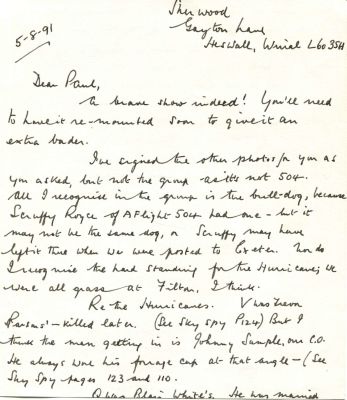 Sherwood
Gayton Lane
Heswall, Wirral L60 3SH
5-8-91
Dear Paul,
A brave show indeed! You'll need
to have it re-mounted soon to give it an
extra border.
I've signed the other photos for you as
you asked, but not the group - as it's not 504.
All I recognise in the group is the bull-dog, because
Scruffy Royce of A Flight 504 had one - but it
may not be the same dog, or Scruffy may have
left it there when we were posted to Exeter. Nor do
I recognise the hard standing for the Hurricane; we
were all grass at Filton, I think.
Re the Hurricanes. V was Trevor
Parsons' - killed later. (See Sky Spy P124) But I
think the man getting in is Johnny Sample, our C.O.
He always wore his forage cap at that angle - (See
Sky Spy pages 123 and 110.
Q was Blair White's. He was married